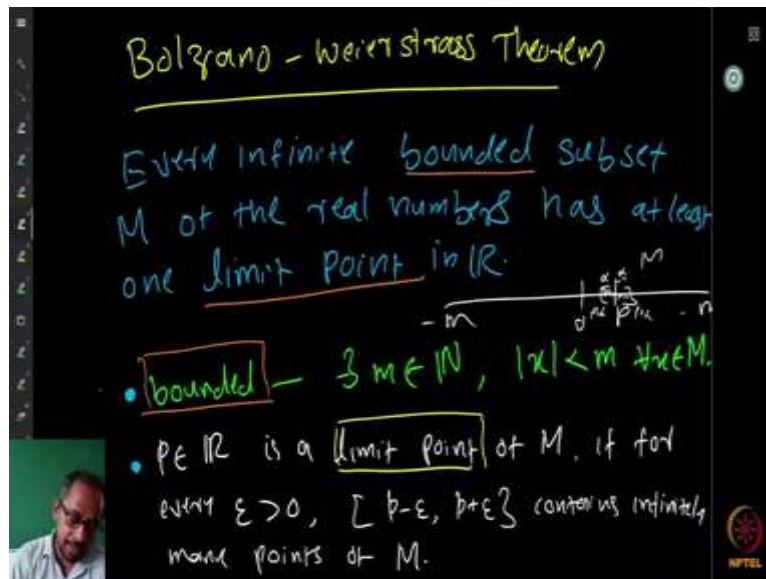 Bolzano - Weierstrass Theorem
Every infinite bounded subset
M of the real numbers has at least
one limit point in ℝ.
M
-m 0 p m
• bounded — ∃ m ∈ ℕ, |x| < m ∀x∈M.
• p∈ ℝ is a limit point of M. if for
every ε > 0, [p-ε, p+ε] contains infinitely
many points of M.
NPTEL